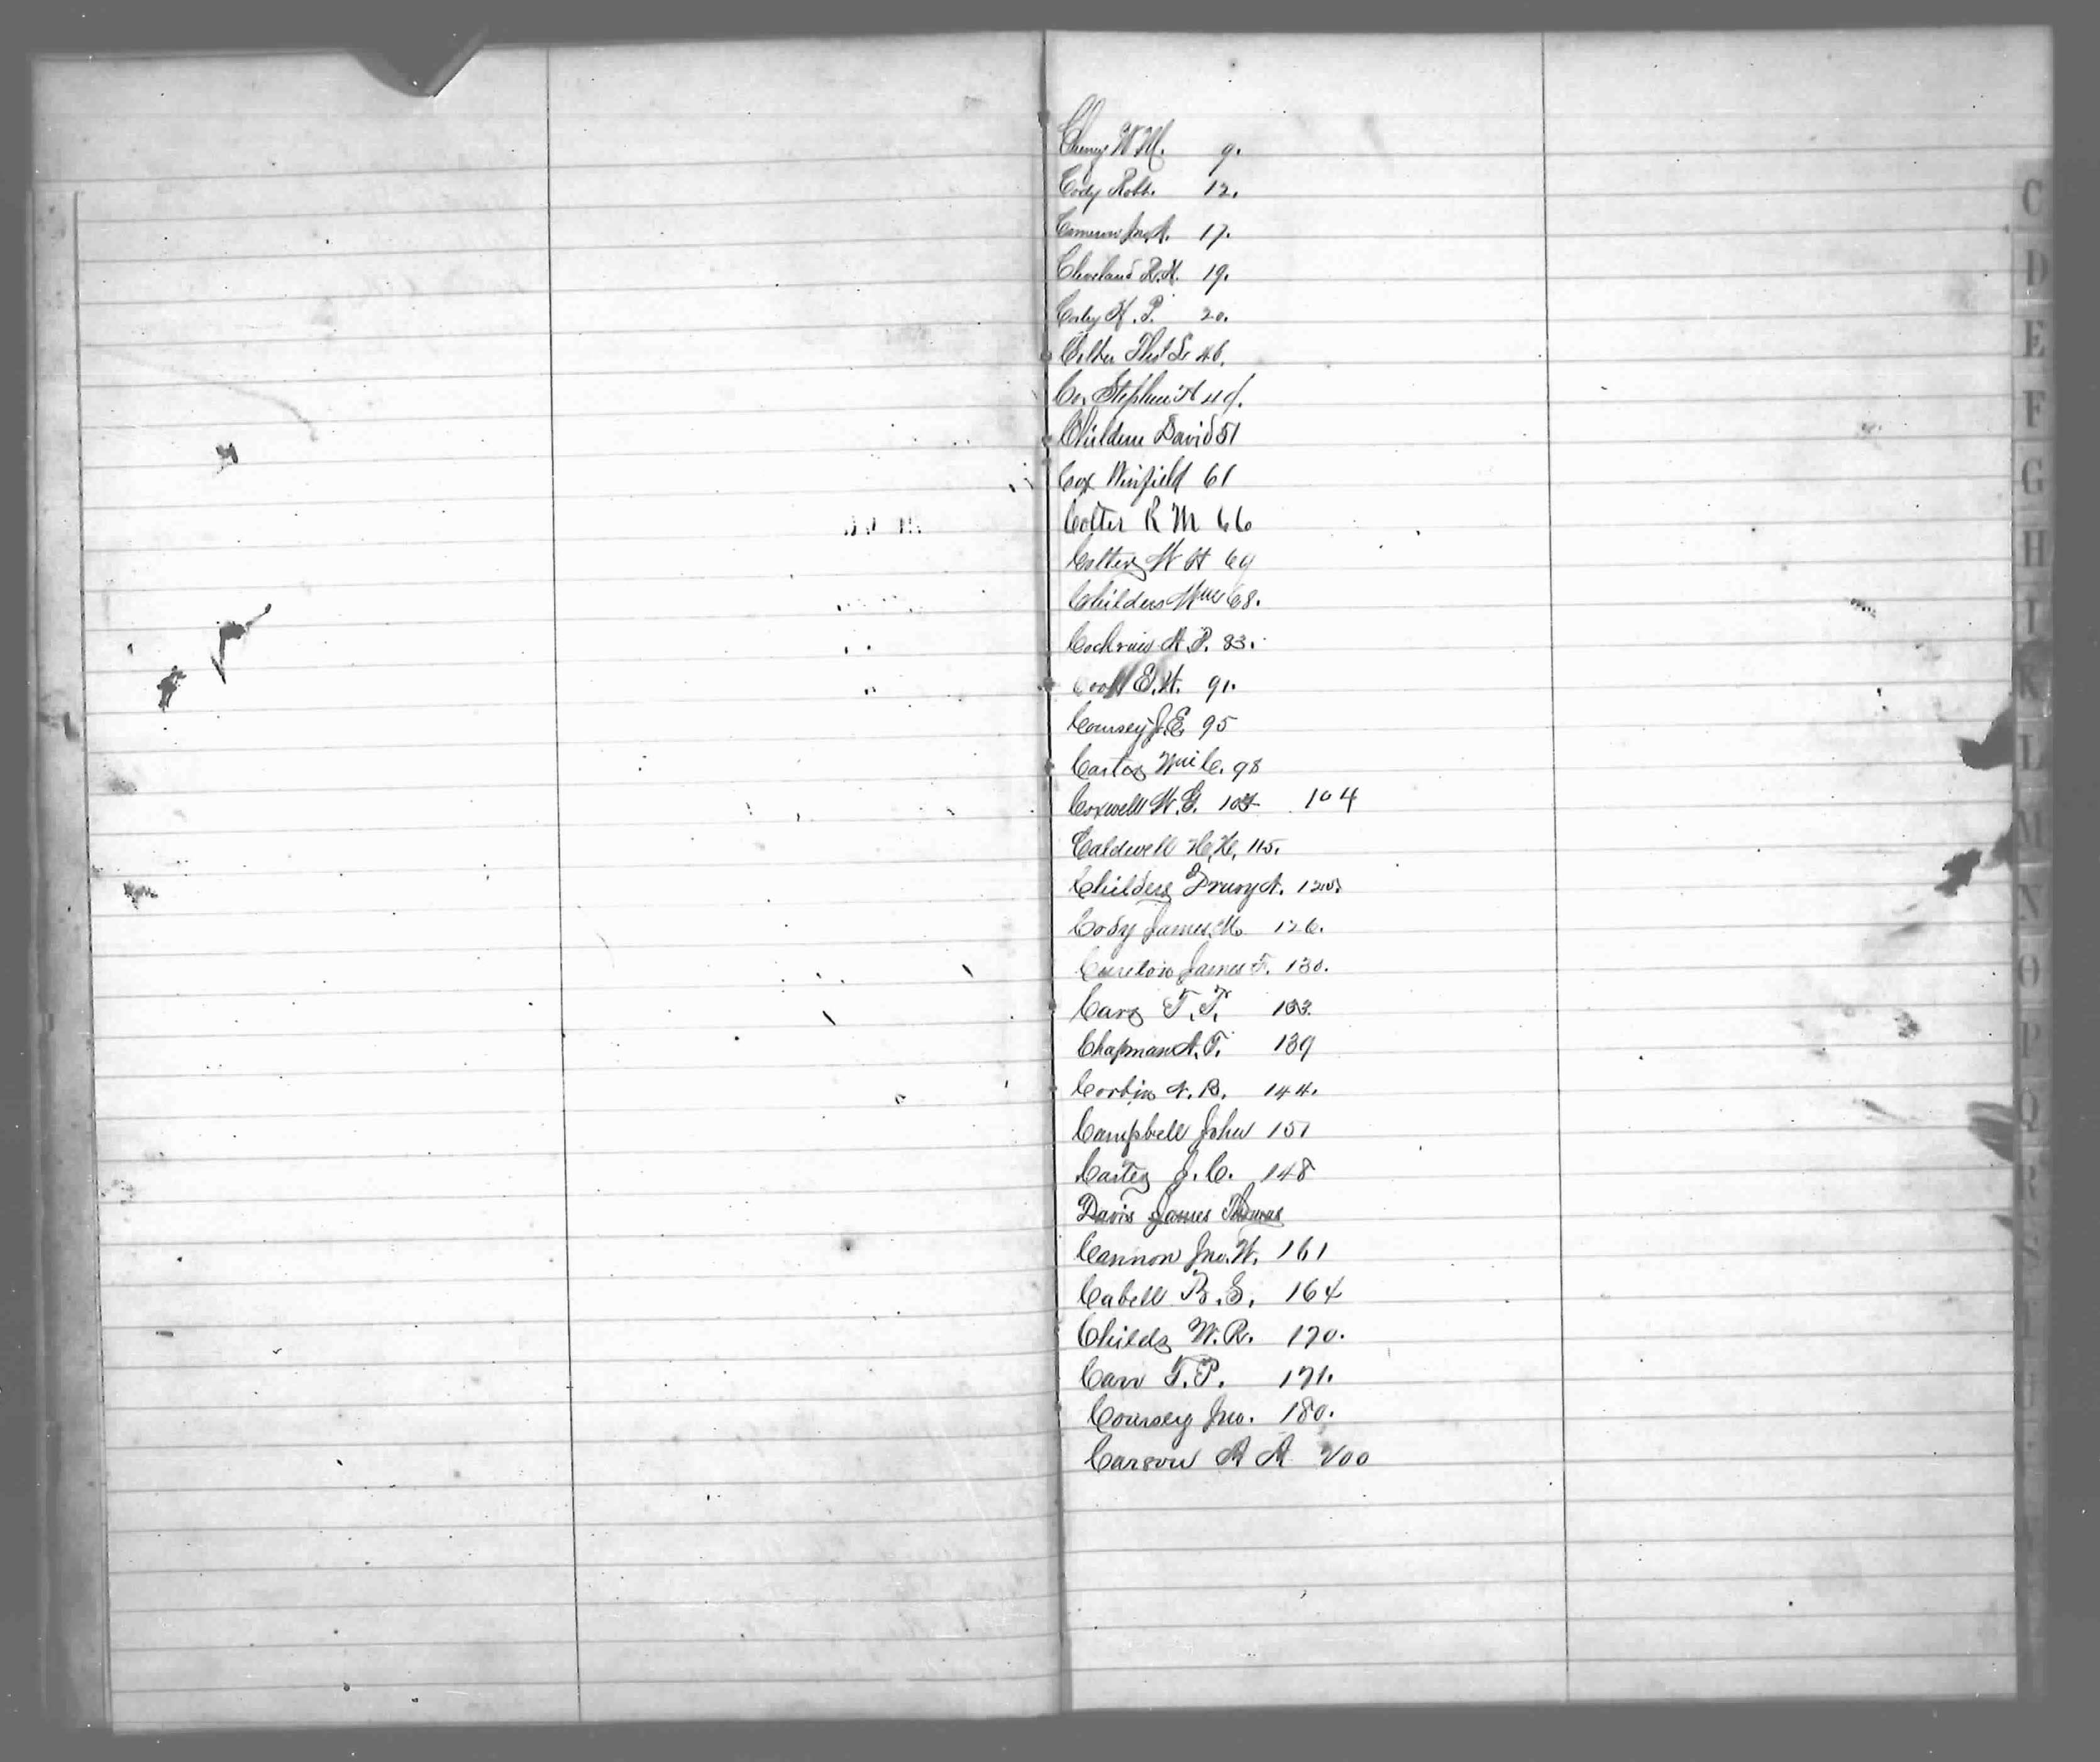 Cheney W.M. 9.
Cody Robt. 12.
Cameron Jno. A. 17.
Cleveland R.H. 19.
Corley H. P. 20.
Thos 46.
Cox Stephen H 49.
Childers David 51
Cox Winfield 61
Colter R M 66
Colter W H 69
Childers Wm 68.
Cochran A.P. 83.
Cook E.H. 91.
Coursey J.E. 95
Carter Wm C. 98
Coxwell W.G. 104
Caldwell H.H. 115.
Childers Drury A. 125.
Cody James M. 126.
Cureton James T. 130.
Carr T.T. 133.
Chapman A.T. 139
Corbin A.B. 144.
Campbell John 151
Carter J.C. 148
Davis James Thomas
Cannon Jno. W. 161
Cabell B.S. 164
Childs W.R. 170.
Carr T.P. 171.
Coursey Jno. 180.
Carson A A 200
C
D
E
F
G
H
I
K
L
M
N
O
P
Q
R